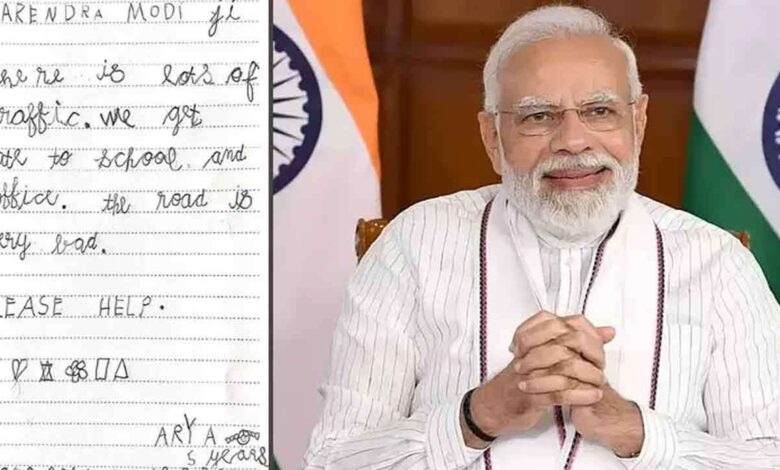 ARENDRA MODI ji
here is lots of
raffic. we get
ate to school and
ffice. the road is
ery bad.
LEASE HELP.
ARYA
5 years